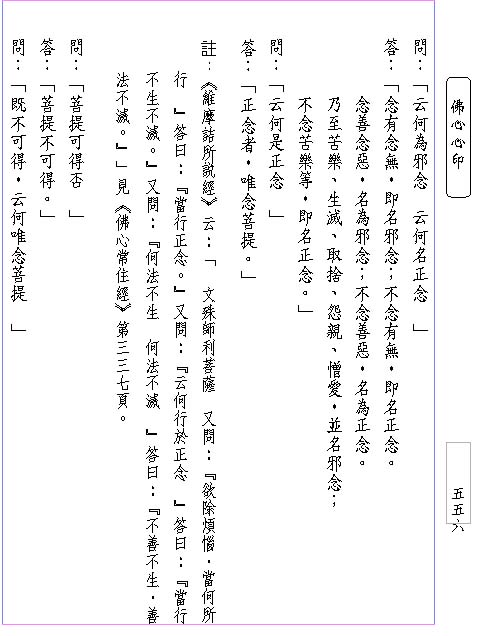 佛心心印
問:「云何為邪念　云何名正念　」
答:「念有念無,即名邪念;不念有無,即名正念。
念善念惡,名為邪念;不念善惡,名為正念。
乃至苦樂、生滅、取捨、怨親、憎愛,並名邪念;
不念苦樂等,即名正念。」
問:「云何是正念　」
答:「正念者,唯念菩提。」
註:《維摩詰所說經》云:「　文殊師利菩薩　又問:『欲除煩惱,當何所
行　』答曰:『當行正念。』又問:『云何行於正念　』答曰:『當行
不生不滅。』又問:『何法不生　何法不滅　』答曰:『不善不生,善
法不滅。』」見《佛心常住經》第三三七頁。
問:「菩提可得否　」
答:「菩提不可得。」
問:「既不可得,云何唯念菩提　」
五五六